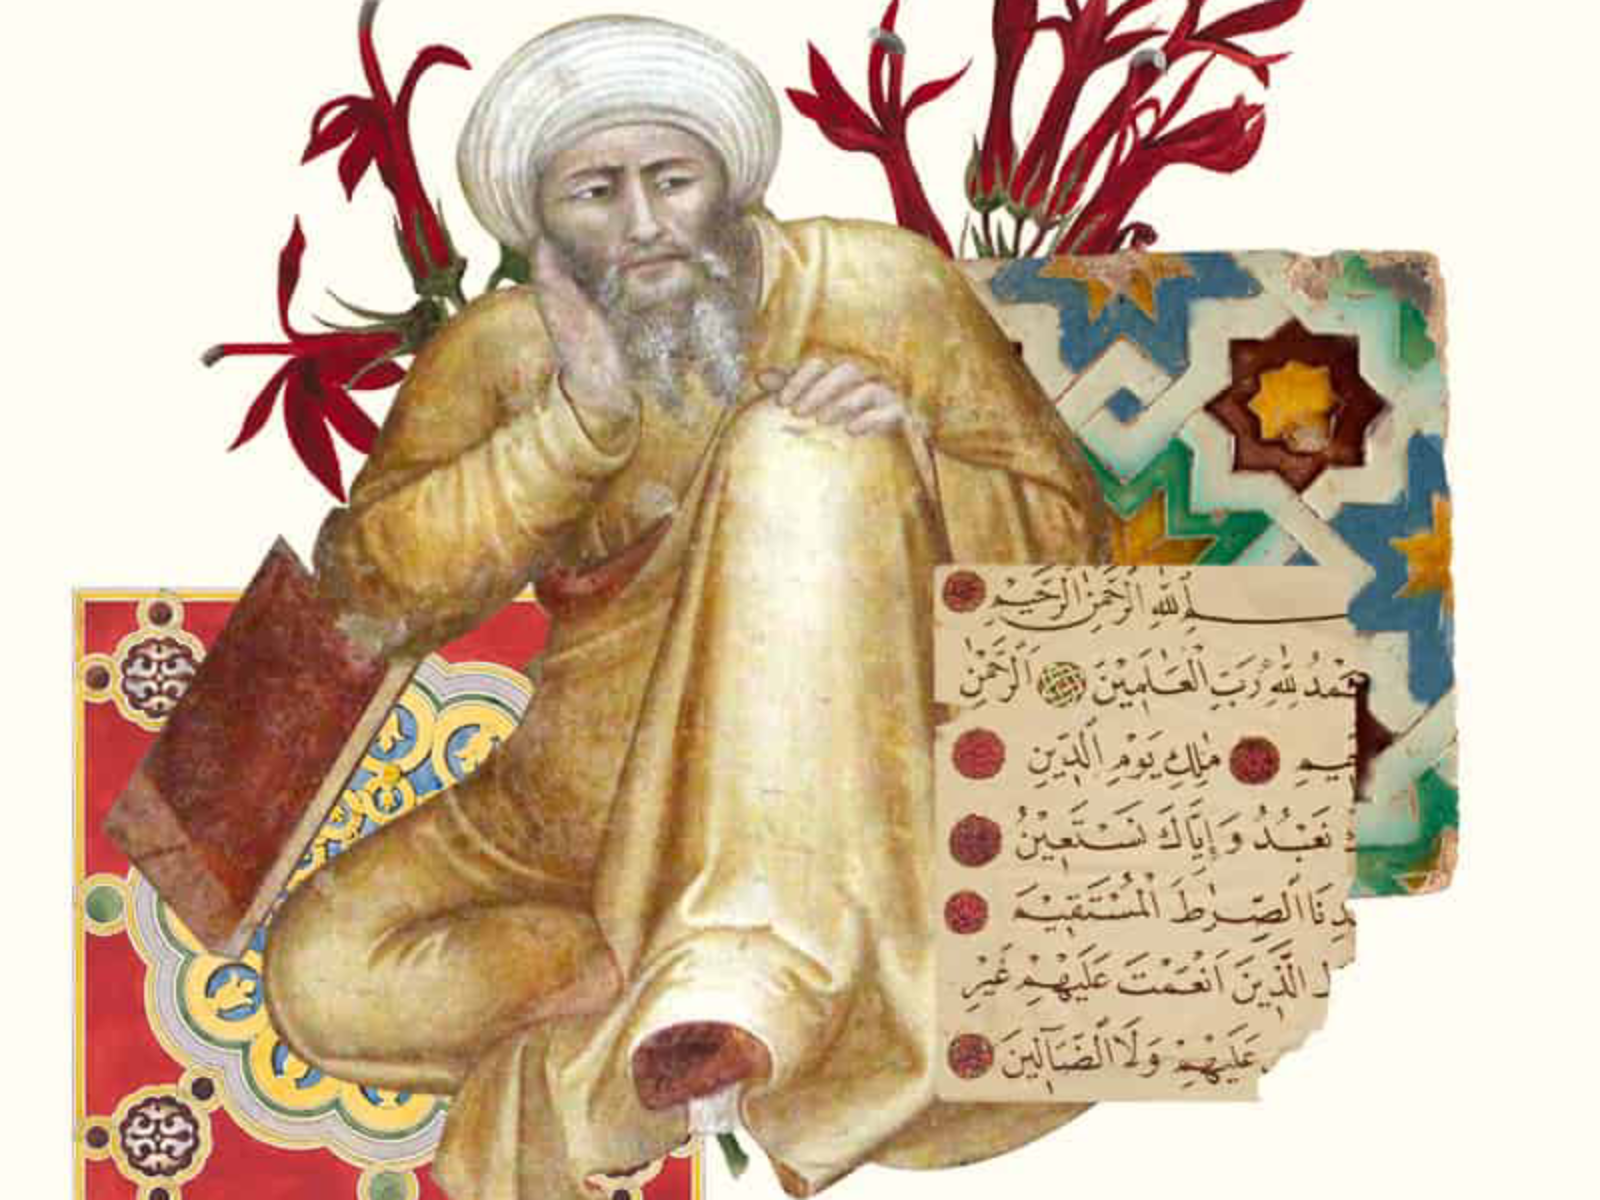 ـسمِ اللهِ الرَّحْمٰنِ الرَّحِيمِ
ـحَمْدُ لِلّٰهِ رَبِّ الْعَالَمِينَ الرَّحْمٰنِ
ـحِيمِ مٰلِكِ يَوْمِ الدِّينِ
كَ نَعْبُدُ وَإِيَّاكَ نَسْتَعِينُ
ـدِنَا الصِّرٰطَ الْمُسْتَقِيمَ
الَّذِينَ اَنْعَمْتَ عَلَيْهِمْ غَيْرِ
عَلَيْهِمْ وَلَا الضَّآلِّينَ